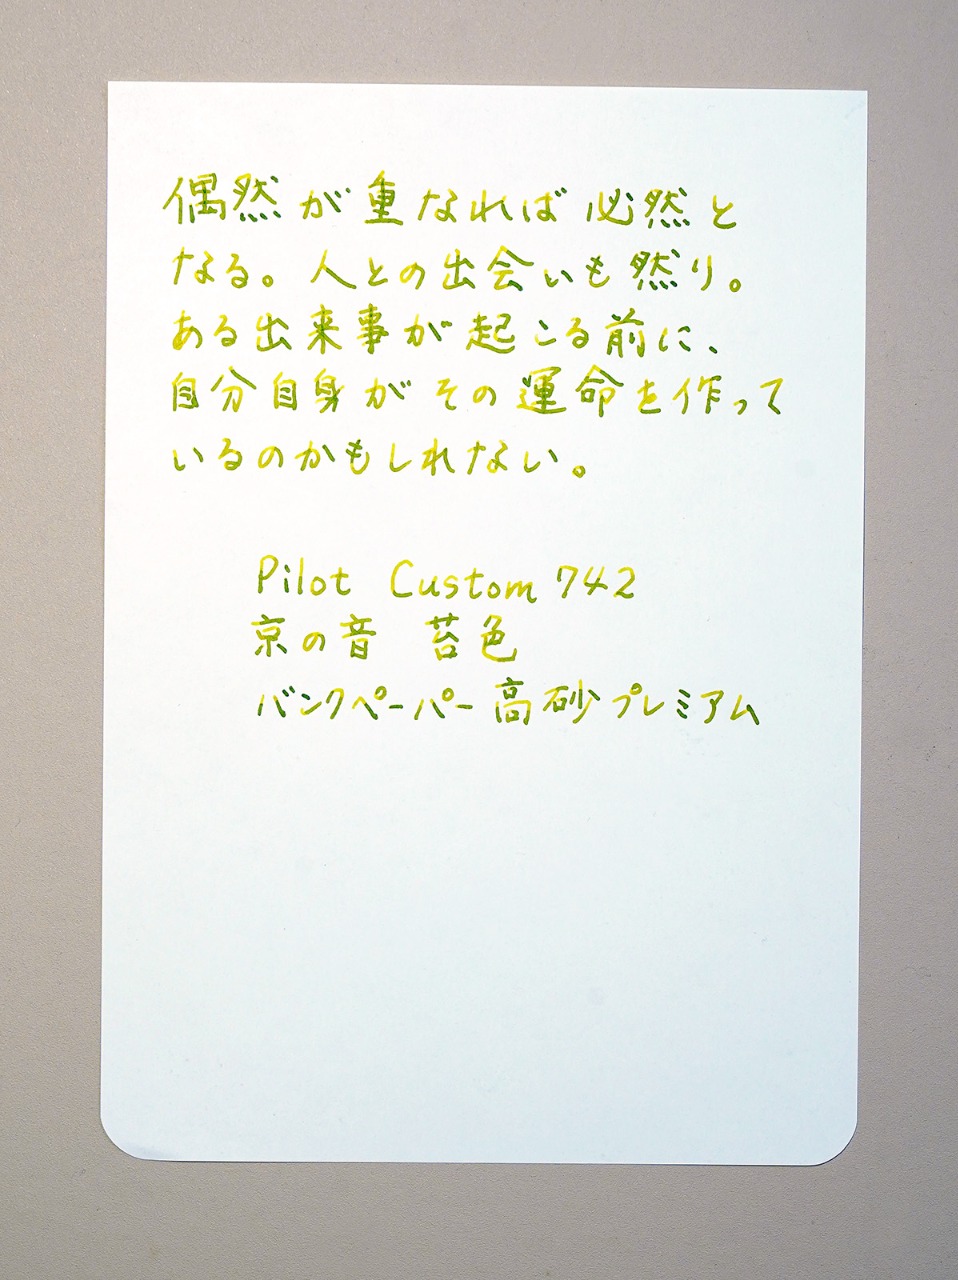 偶然が重なれば必然と
なる。人との出会いも然り。
ある出来事が起こる前に、
自分自身がその運命を作って
いるのかもしれない。
Pilot Custom 742
京の音 苔色
バンクペーパー高砂プレミアム